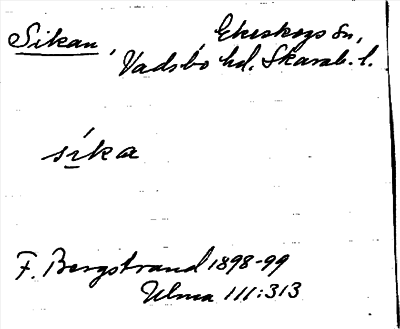 Sikan, Ekeskogs sn,
Vadsbo hd. Skarab. l.
síka
F. Bergstrand 1898-99
Ulma 111:313